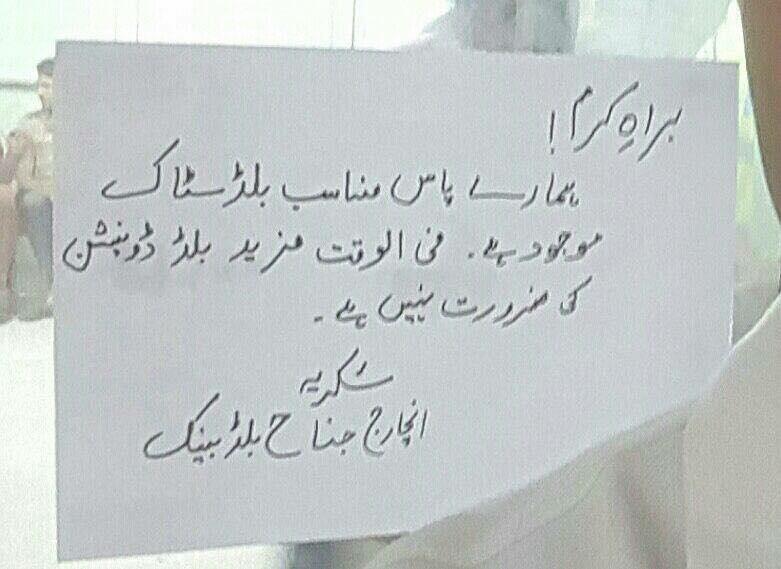 براہِ کرم !
ہمارے پاس مناسب بلڈ سٹاک
موجود ہے۔ فی الوقت مزید بلڈ ڈونیشن
کی ضرورت نہیں ہے۔
شکریہ
انچارج جناح بلڈ بینک